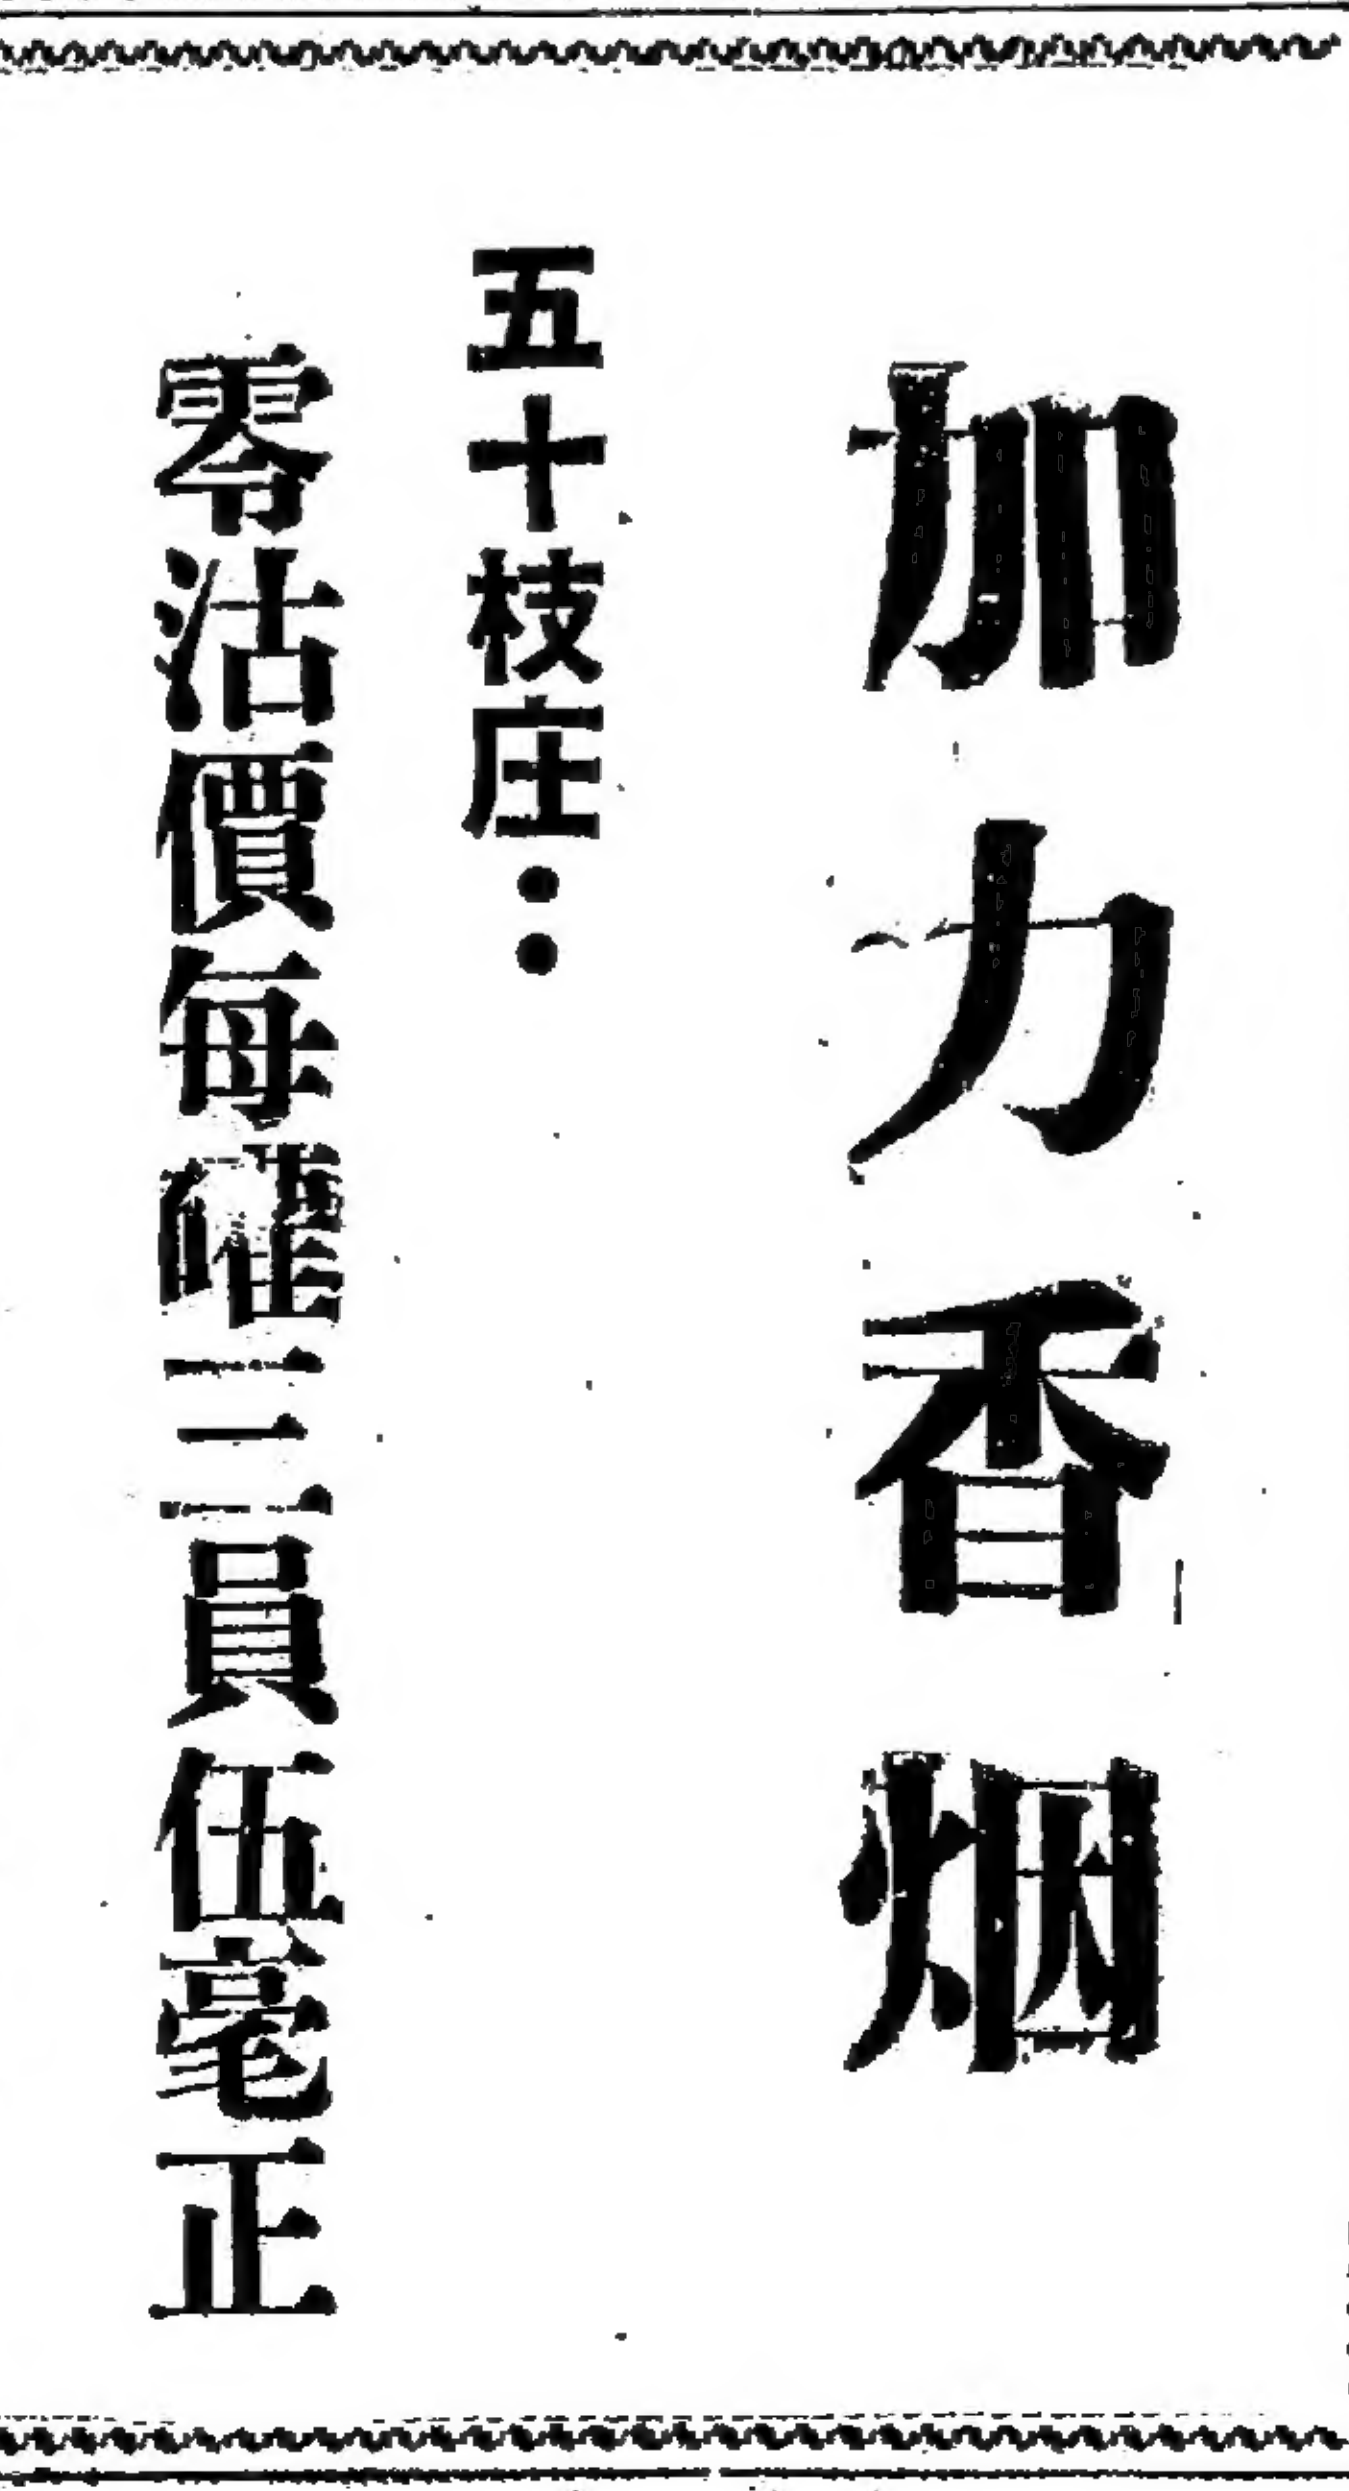 加力香烟
五十枝庄：
零沽價每罐三員伍毫正